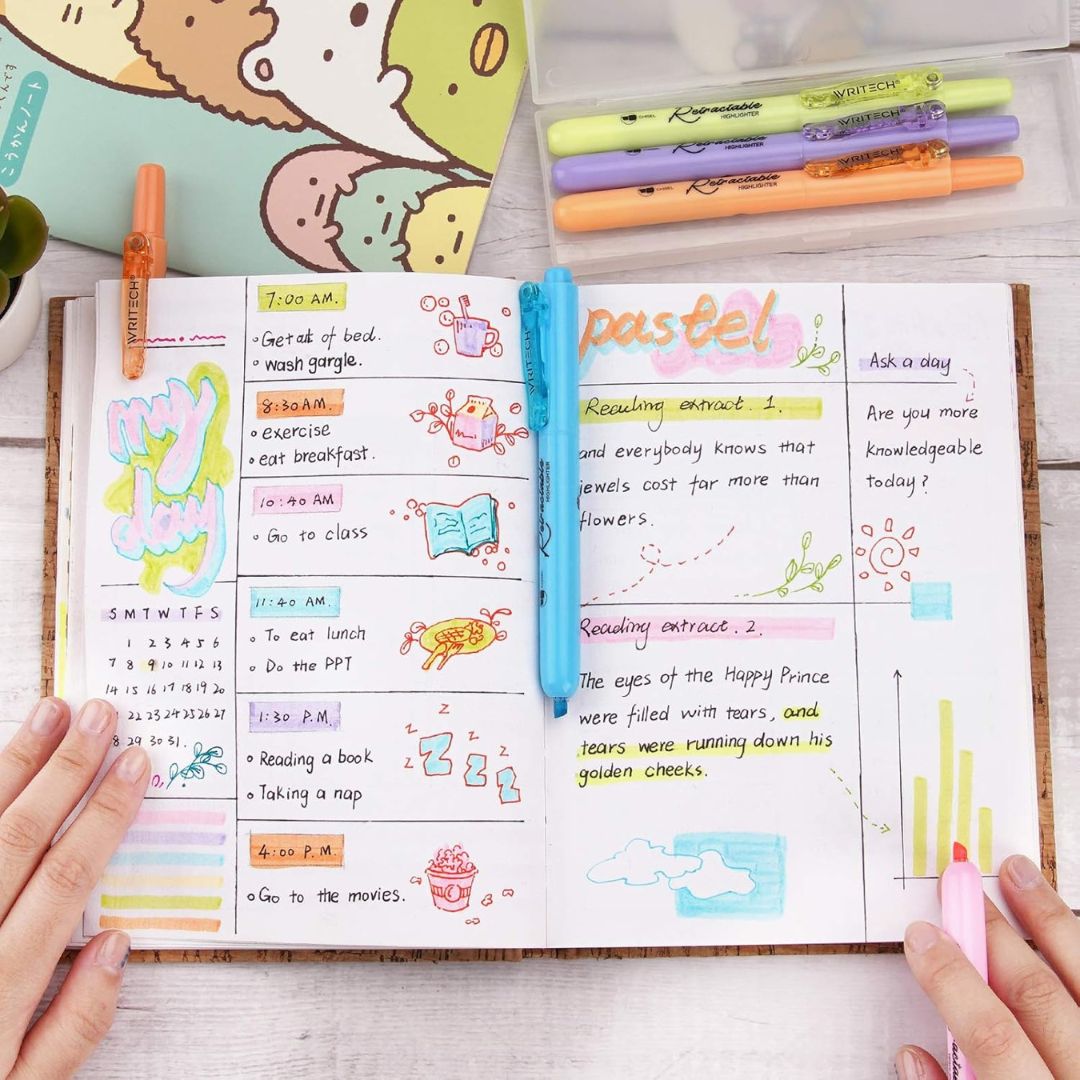 こうかんノート
WRITECH®
CHISEL Retractable HIGHLIGHTER
WRITECH®
CHISEL Retractable HIGHLIGHTER
WRITECH®
CHISEL Retractable HIGHLIGHTER
WRITECH®
my
day
S M T W T F S
1 2 3 4 5 6
7 8 9 10 11 12 13
14 15 16 17 18 19 20
22 23 24 25 26 27
8 29 30 31.
7:00 AM.
Get of bed.
wash gargle.
8:30 AM.
exercise
eat breakfast.
10:40 AM
Go to class
11:40 AM.
To eat lunch
Do the PPT
1:30 P.M.
Reading a book
Taking a nap
z
Z z
z Z z
Z
4:00 P.M
Go to the movies.
WRITECH
Retractable HIGHLIGHTER
pastel
Reading extract. 1.
and everybody knows that
jewels cost far more than
flowers.
Reading extract. 2.
The eyes of the Happy Prince
were filled with tears, and
tears were running down his
golden cheeks.
Ask a day
Are you more
knowledgeable
today?